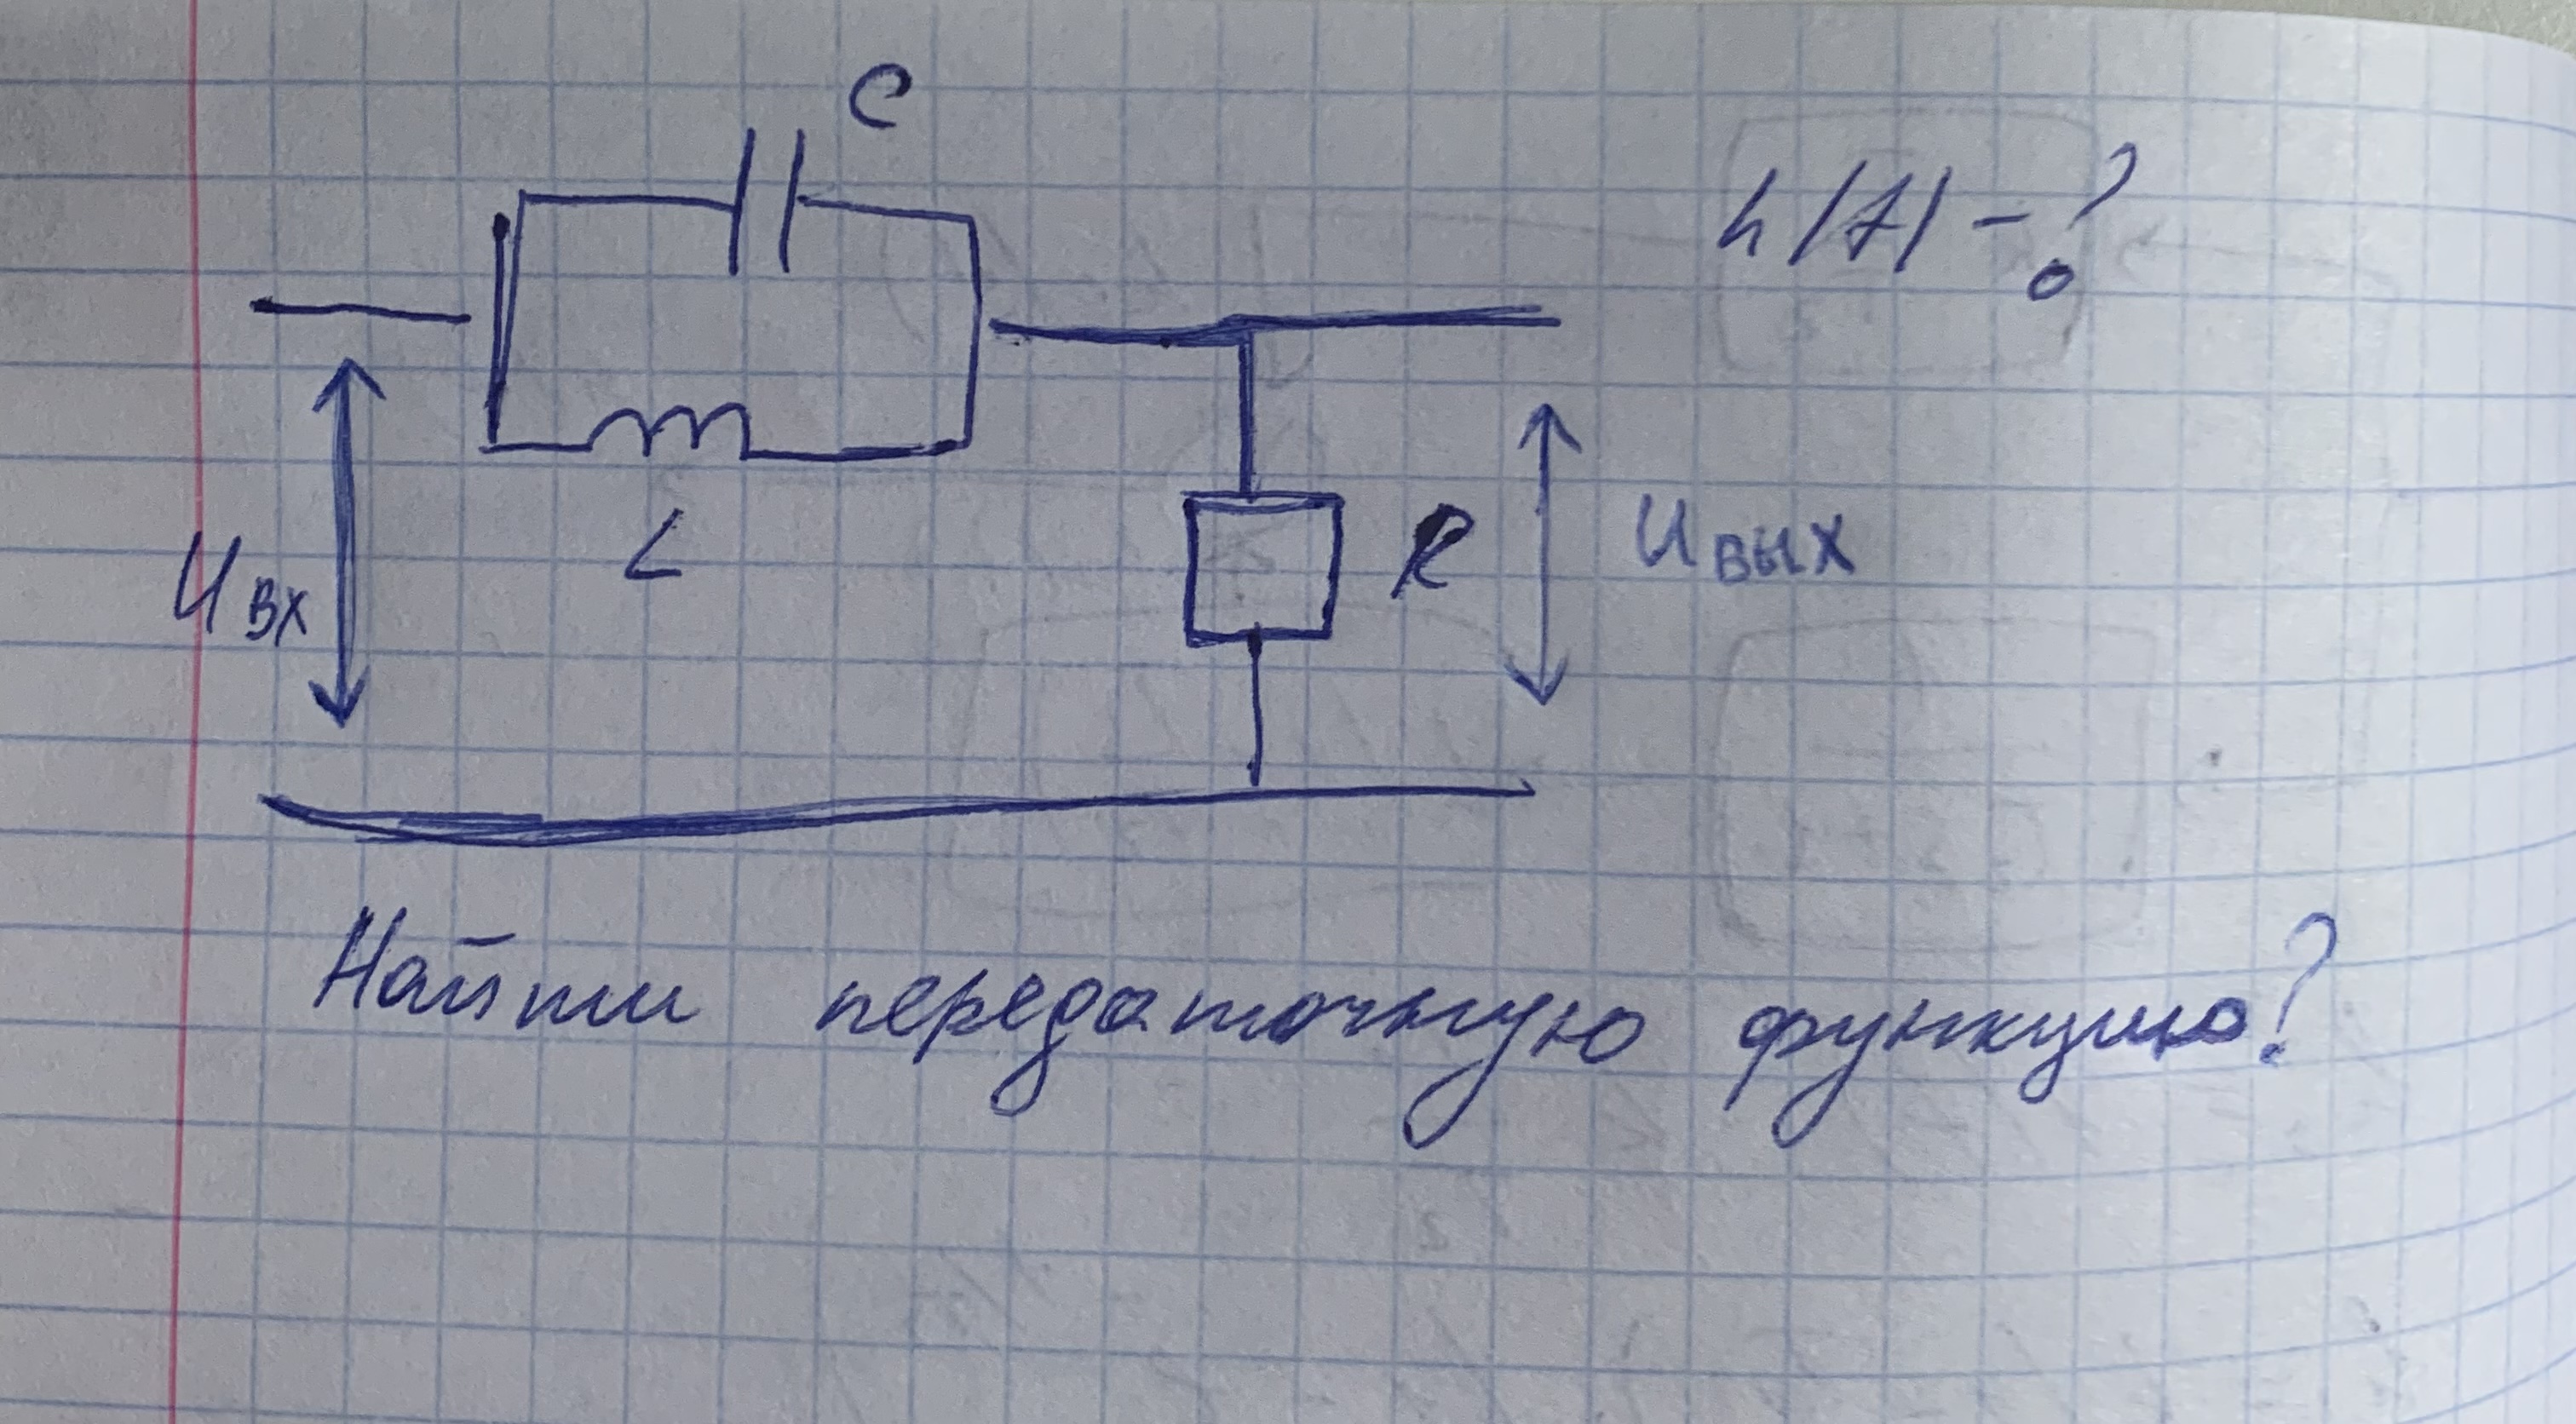 C
h(t) - ?
L
R
Uвх
Uвых
Найти передаточную функцию?